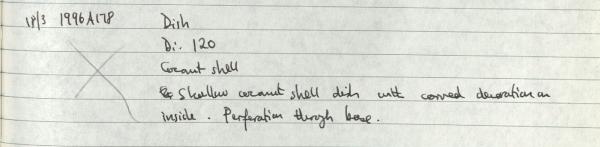 18/3 1996A178 Dish
Di: 120
Coconut shell
Shallow coconut shell dish with carved decoration on
inside. Perforation through base.